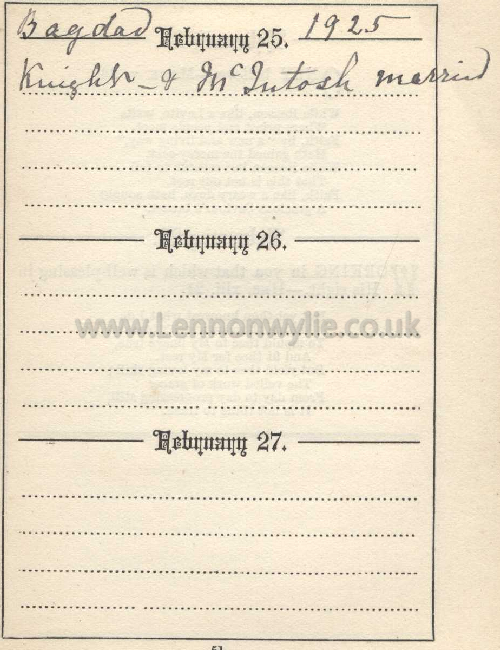 Bagdad February 25. 1925
Knight - & McIntosh married
February 26.
www.Lennonwylie.co.uk
February 27.